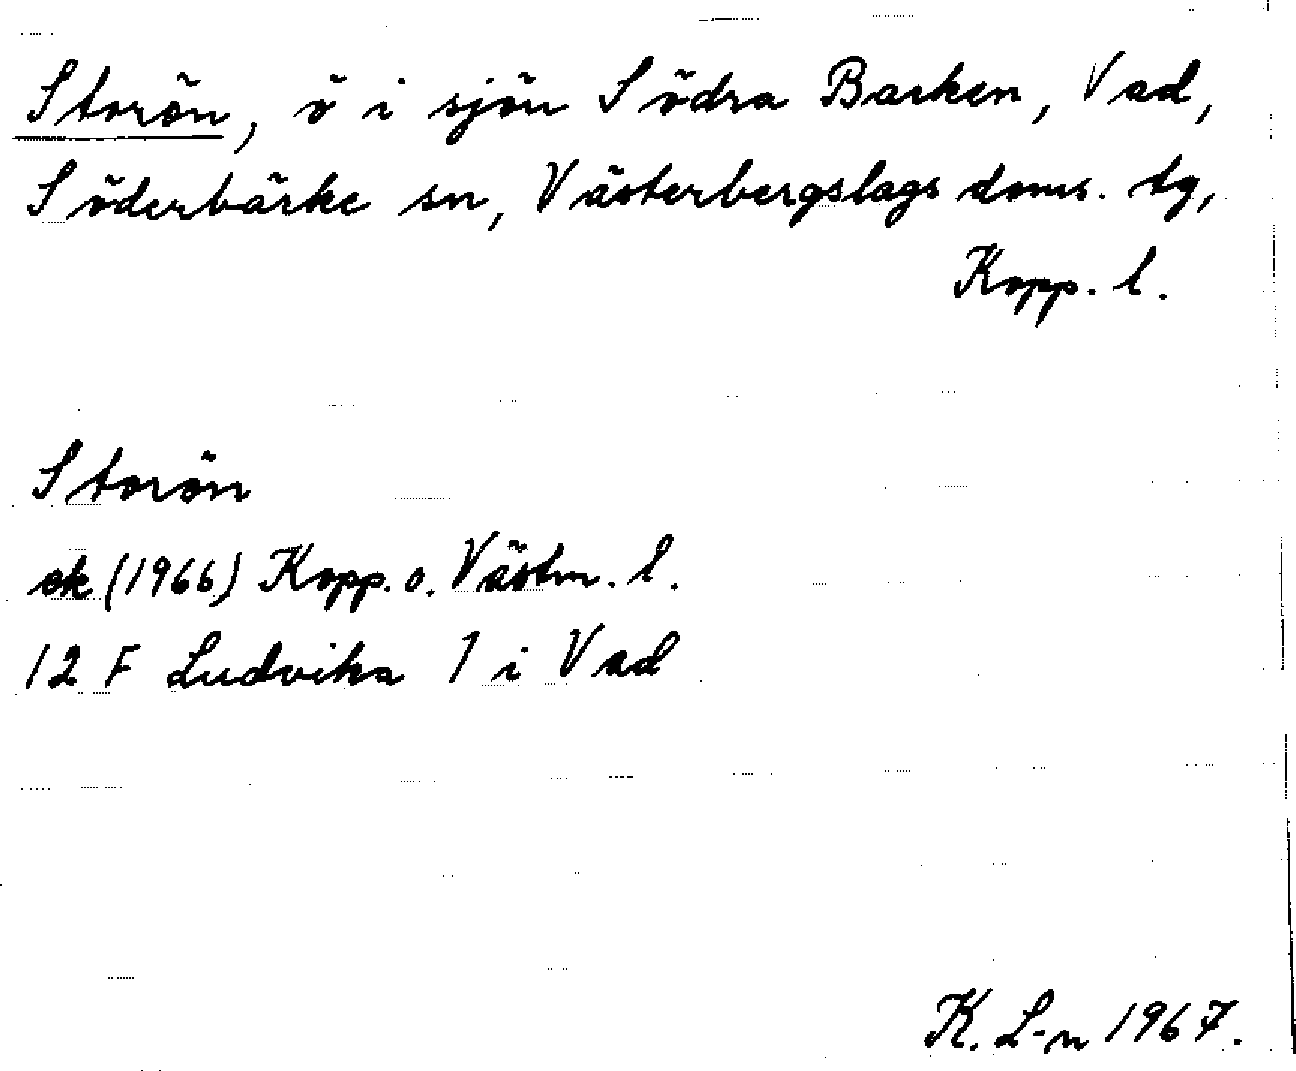 Storön, ö i sjön Södra Barken, Vad,
Söderbärke sn, Västerbergslags doms. tg,
Kopp. l.
Storön
ek (1966) Kopp. o. Västm. l.
12 F Ludvika 1 i Vad
K. L-n 1967.